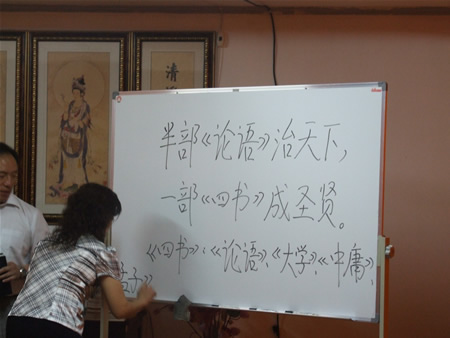 半部《论语》治天下,
一部《四书》成圣贤。
《四书》:《论语》、《大学》、《中庸》、
孟子》
清